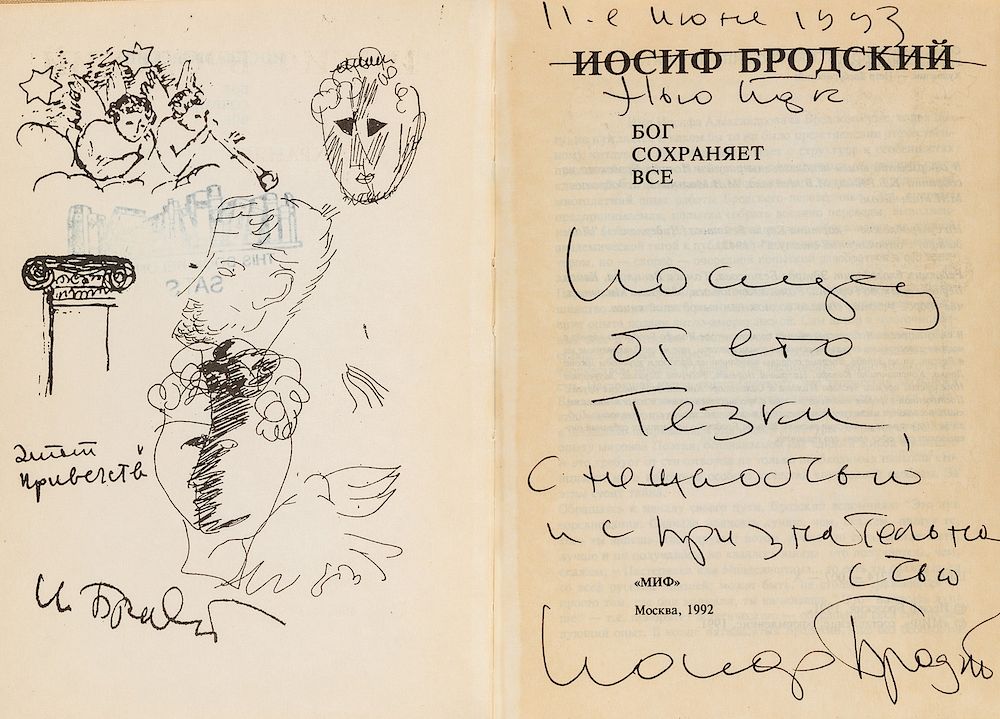 Эпат
приветств
И. Бродский
11-е июня 1993
ИОСИФ БРОДСКИЙ
Нью Йорк
БОГ
СОХРАНЯЕТ
ВСЕ
Иосифу
от его
тезки,
с нежностью
и с признательно
стью
«МИФ»
Москва, 1992
Иосиф Бродский